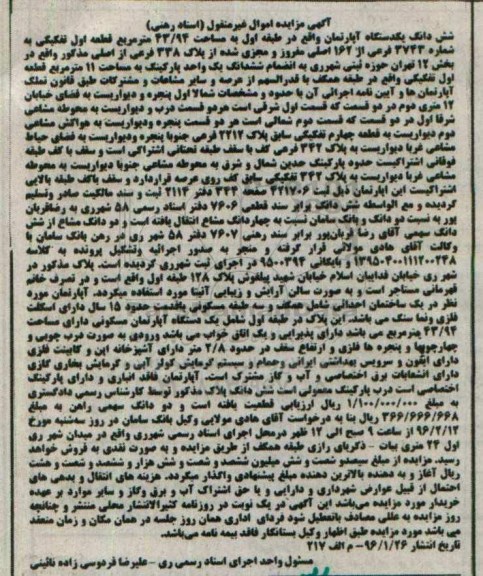 آگهی مزایده اموال غیرمنقول (اسناد رهنی)
شش دانگ یکدستگاه آپارتمان واقع در طبقه اول به مساحت ۴۳/۹۴ مترمربع قطعه اول تفکیکی به
شماره ۳۷۴۳ فرعی از ۱۶۲ اصلی مفروز و مجزی شده از پلاک ۳۳۸ فرعی از اصلی مذکور واقع در
بخش ۱۲ تهران حوزه ثبتی شهرری به انضمام ششدانگ یک واحد پارکینگ به مساحت ۱۱ مترمربع قطعه
اول تفکیکی واقع در طبقه همکف با قدرالسهم از عرصه و سایر مشاعات و مشترکات طبق قانون تملک
آپارتمان ها و آیین نامه اجرائی آن با حدود و مشخصات شمالا اول پنجره و دیواریست به فضای خیابان
۱۲ متری دوم در دو قسمت که قسمت اول شرقی است هردو قسمت درب و دیواریست به محوطه مشاعی
شرقا اول در دو قسمت که قسمت دوم شمالی است هر دو قسمت پنجره ودیواریست به هواکش مشاعی
دوم دیواریست به قطعه چهارم تفکیکی سابق پلاک ۲۲۱۲ فرعی جنوبا پنجره ودیواریست به فضای حیاط
مشاعی غربا دیواریست به پلاک ۳۴۲ فرعی کف با سقف طبقه تحتانی اشتراکی است و سقف با کف طبقه
فوقانی اشتراکیست حدود پارکینگ حدین شمال و شرق به محوطه مشاعی جنوبا دیواریست به محوطه
مشاعی غربا دیواریست به پلاک ۳۴۲ تفکیکی سابق کف روی عرصه قراردارد و سقف باکف طبقه بالایی
اشتراکیست این اپارتمان ذیل ثبت ۴۲۱۷۰۶ صفحه ۳۴۴ دفتر ۲۱۱۴ ثبت و سند مالکیت صادر وتسلیم
گردیده و مع الواسطه شش دانگ برابر سند قطعی ۷۶۰۶ دفتر اسناد رسمی ۵۸ شهرری به رضاقربان
پور به نسبت دو دانگ و بانک سامان نسبت به چهاردانگ مشاع انتقال یافته است و دو دانگ مشاع از شش
دانگ سهمی آقای رضا قربان‌پور برابر سند رهنی ۷۶۰۷ دفتر ۵۸ شهر ری در رهن بانک سامان با
وکالت آقای هادی مولائی قرار گرفته و منجر به صدور اجرائیه وتشکیل پرونده به کلاسه
۱۳۹۵۰۴۰۰۱۱۱۲۰۰۲۴۸ بایگانی ۹۵۰۰۳۹۴ در اجرای ثبت شهرری گردیده است. پلاک مذکور در
شهر ری خیابان فدائیان اسلام خیابان شهید پیلغوش پلاک ۱۲۸ طبقه اول واقع است و در تصرف خانم
قهرمانی مستاجر است و به صورت سالن آرایش و زیبایی آتینا مورد استفاده میگردد. آپارتمان مورد
نظر در یک ساختمان احداثی شامل همکف و سه طبقه مسکونی باقدمت حدود ۱۵ سال دارای اسکلت
فلزی ونما سنگ می باشد. این پلاک در طبقه اول شامل یک دستگاه آپارتمان مسکونی دارای مساحت
۴۳/۹۴ مترمربع می باشد دارای پذیرایی و یک اتاق خواب می باشد ورودی به صورت درب چوبی و
چهارچوبها و پنجره ها فلزی و ارتفاع سقف در حدود ۲/۸ متر دارای آشپزخانه اپن و کابینت فلزی
دارای آیفون و سرویس بهداشتی ایرانی وحمام و سیستم گرمایش کولر آبی و گرمایش بخاری گازی
دارای انشعابات برق اختصاصی و آب و گاز مشترک است. آپارتمان فاقد انباری و دارای پارکینگ
اختصاصی است درب پارکینگ معمولی است شش دانگ پلاک مذکور توسط کارشناس رسمی دادگستری
به مبلغ ۱/۱۰۰/۰۰۰/۰۰۰ ریال ارزیابی قطعیت یافته است و دو دانگ سهمی راهن به مبلغ
۳۶۶/۶۶۶/۶۶۸ ریال بنا به درخواست آقای هادی مولایی وکیل بانک سامان در روز سه‌شنبه مورخ
۹۶/۲/۱۲ از ساعت ۹ صبح الی ۱۲ ظهر درمحل اجرای اسناد رسمی شهرری واقع در میدان شهر ری
اول ۲۴ متری بیات - ذکریای رازی طبقه همکف از طریق مزایده و به صورت نقدی به فروش خواهد
رسید. مزایده از مبلغ سیصدو شصت و شش میلیون ششصد و شصت و شش هزار و ششصد و شصت و هشت
ریال آغاز و به دهنده بالاترین دهنده مبلغ پیشنهادی واگذار میگردد. هزینه های انتقال و بدهی های
احتمال از قبیل عوارض شهرداری و دارایی و یا حق اشتراک آب و برق وگاز و سایر موارد بر عهده
خریدار مورد مزایده می‌باشد این آگهی در یک نوبت در روزنامه کثیرالانتشار محلی منتشر و چنانچه
روز مزایده به عللی مصادف باتعطیل شود فردای اداری همان روز جلسه در همان مکان و زمان منعقد
می باشد مورد مزایده طبق اظهار وکیل بستانکار فاقد بیمه نامه می‌باشد.
تاریخ انتشار ۹۶/۱/۲۶- م الف ۲۱۷
مسئول واحد اجرای اسناد رسمی ری - علیرضا فردوسی زاده نائینی